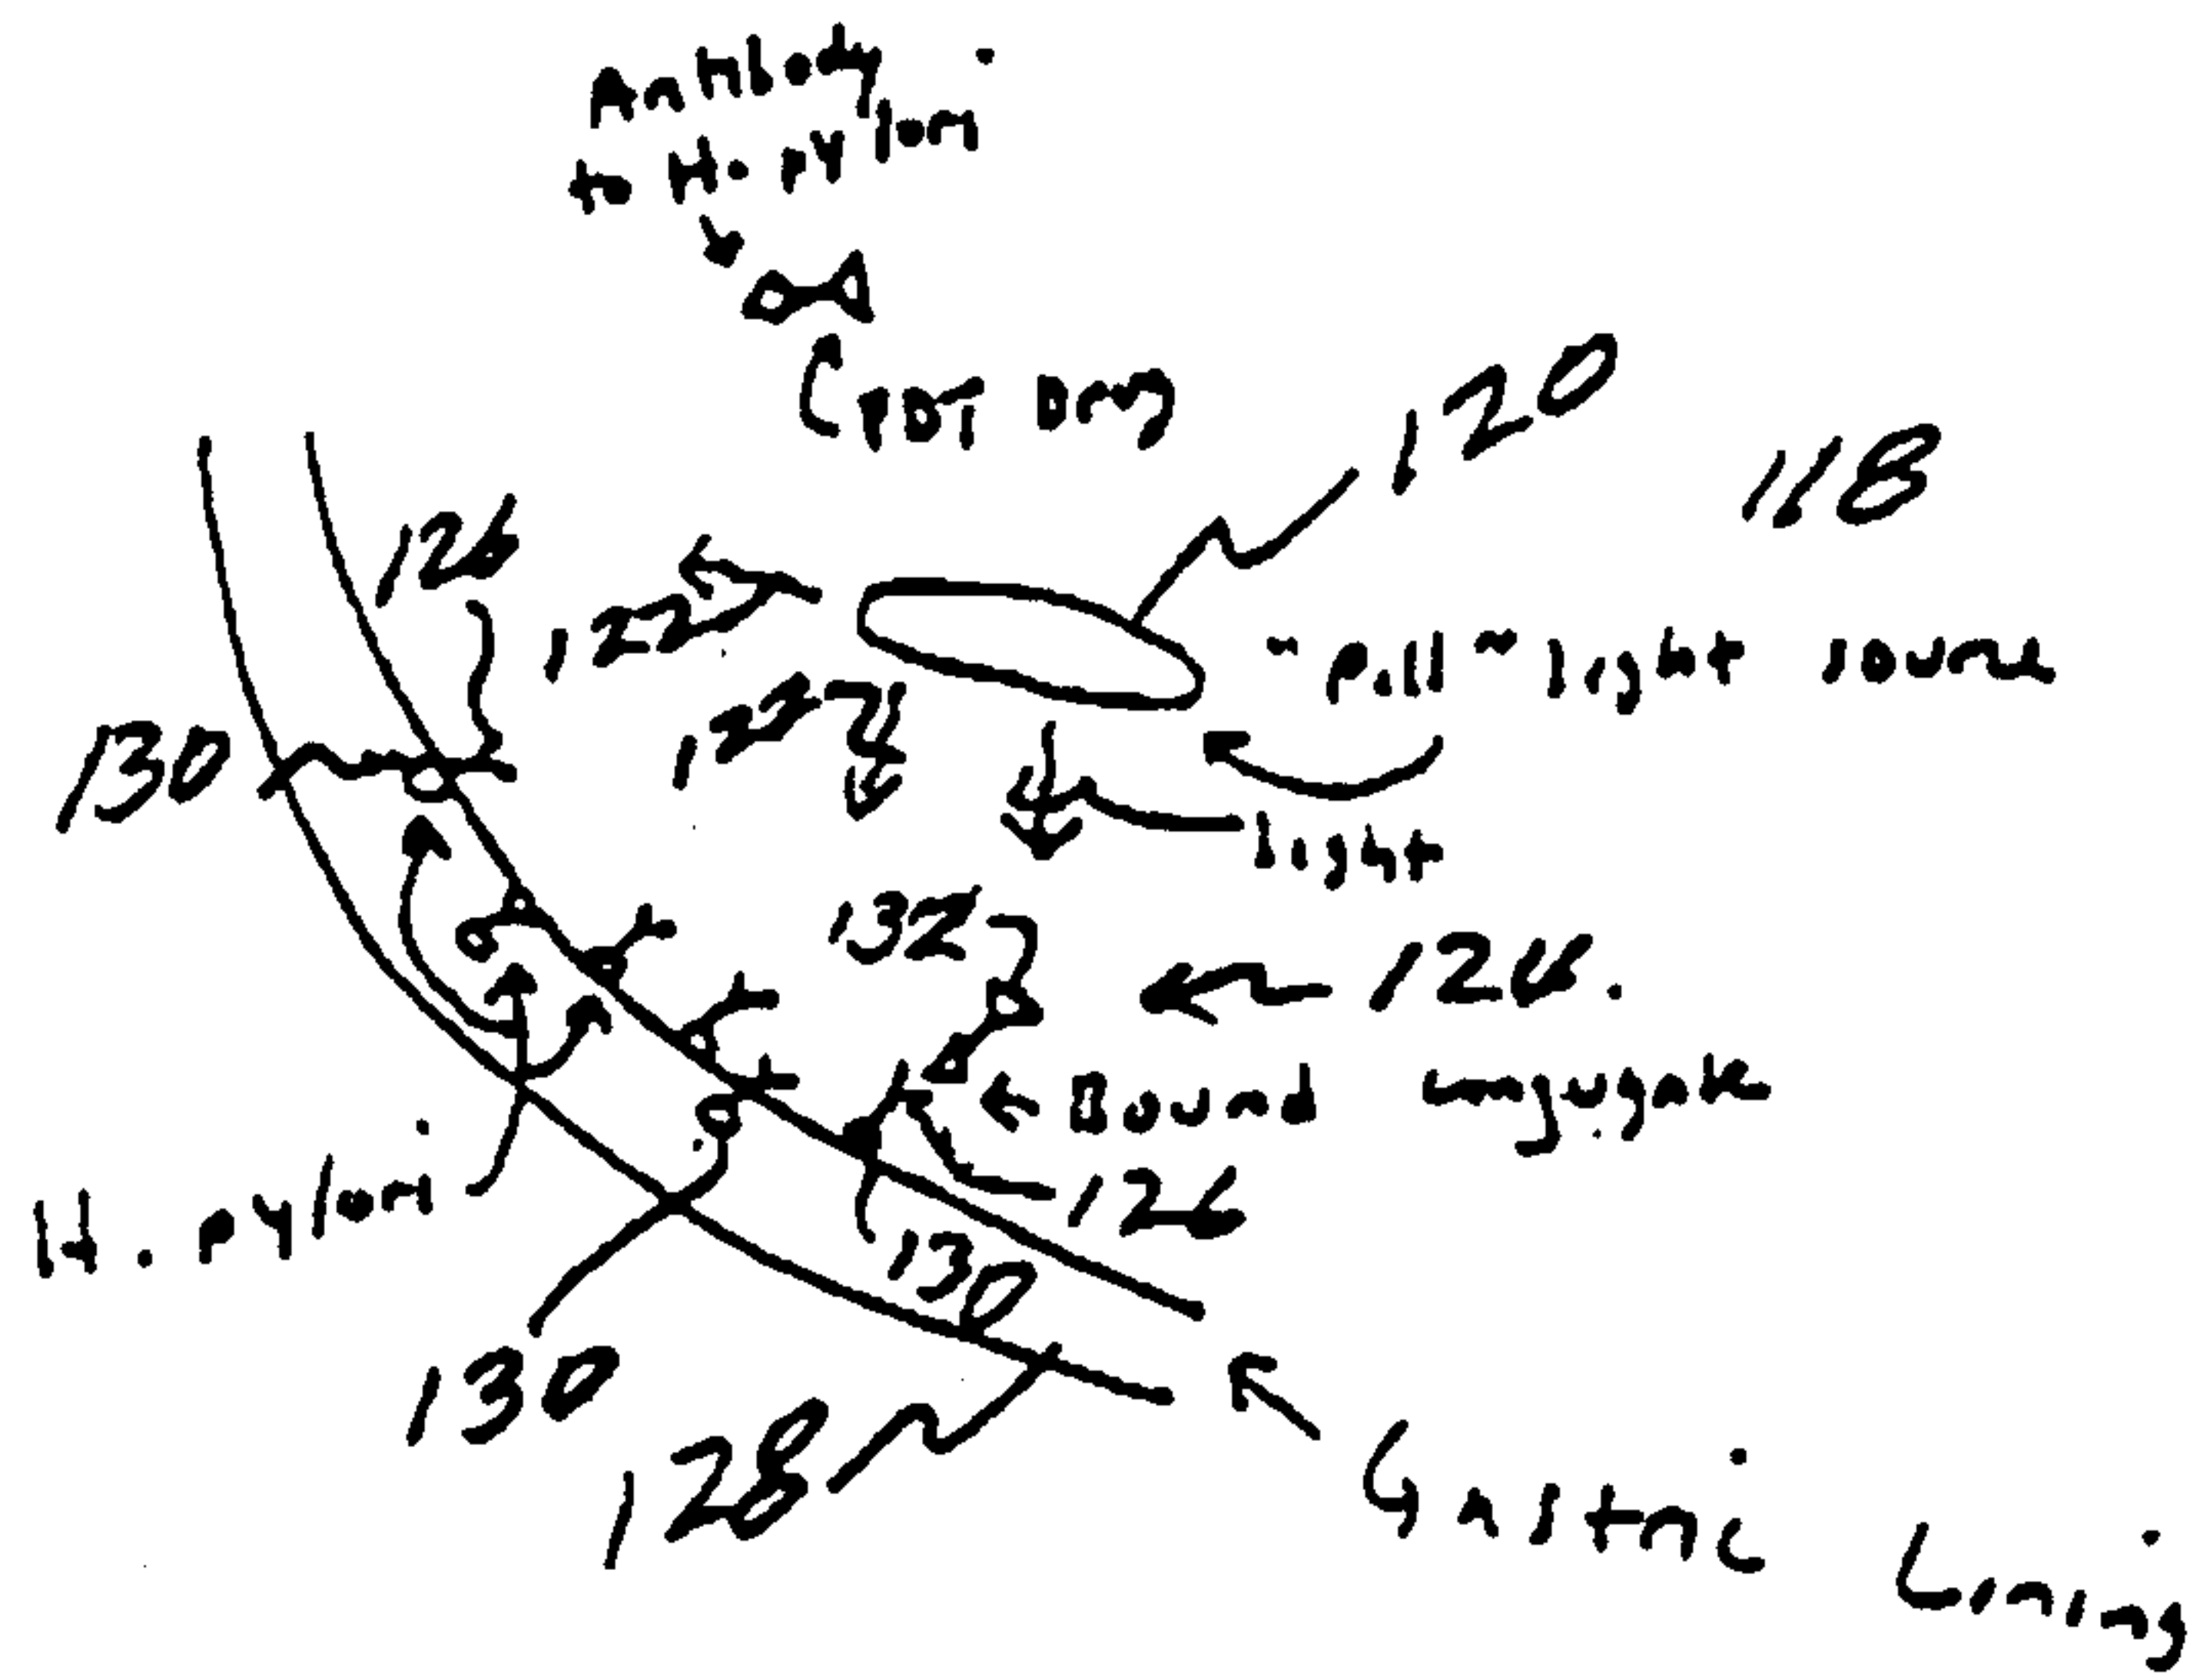 Antibody
to H. pylori
PDT Drug
120
118
126
122
"Pill" light source
122
130
light
132
124.
Bound conjugate
126
H. pylori
130
130
128
Gastric Lining